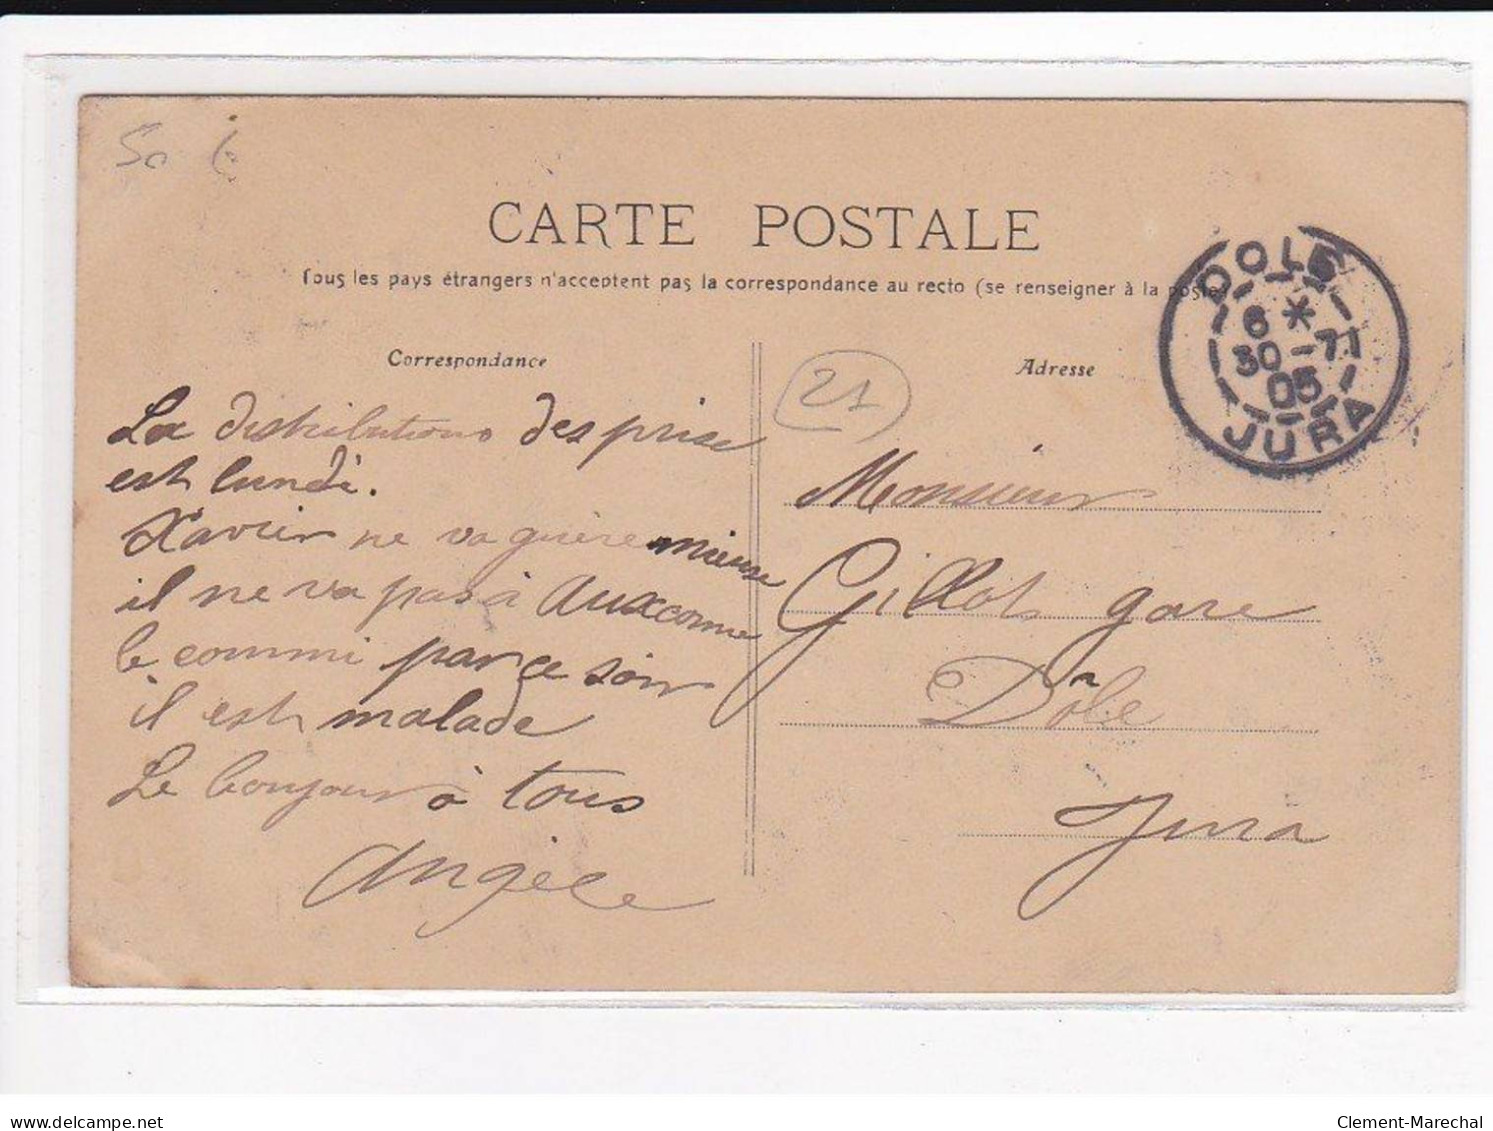 50 €
CARTE POSTALE
Tous les pays étrangers n'acceptent pas la correspondance au recto (se renseigner à la poste)
Correspondance
La distributions des prise
est lundi.
Xavier ne va guère mieuse
il ne va pas à Auxconne
le commi par ce soir
il est malade
Le bonjour à tous
Angèle
21
Adresse
Monsieur
Gillot gare
Dôle
Jura
DOLE
6 *
30 -7
05
JURA
delcampe.net
Clement-Marechal